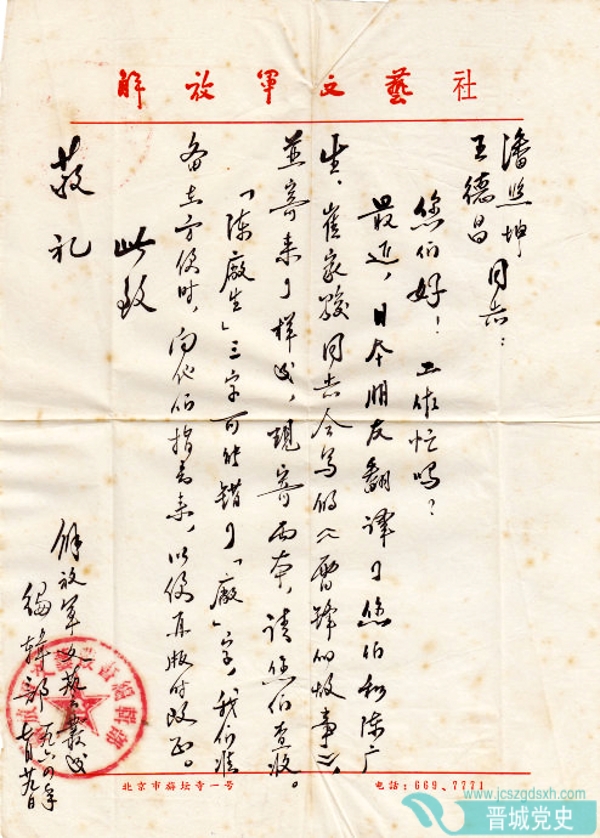 解放軍文藝社
潘照坤
王德昌 同志：
您们好！工作忙吗？
最近，日本朋友翻译了您们和陈广
生、崔家骏同志合写的《雷锋的故事》，
并寄来了样书，现寄两本，请您们查收。
「陈廠生」三字可能错了「廠」字，我们准
备在方便时，向他们指出来，以便再版时改正。
此致
敬礼
解放军文艺叢书
编辑部 一九六四年
七月廿九日
北京市旃坛寺一号 电话：669、7771
www.jcszgdsxh.com
晋城党史